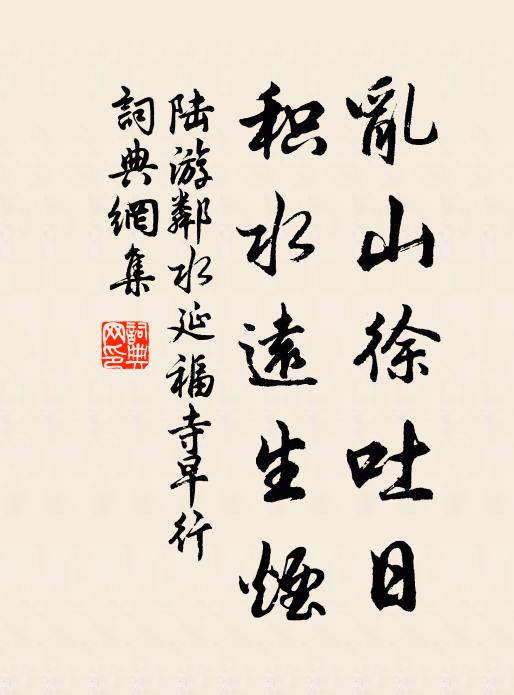 亂山徐吐日
积水遠生煙
陆游鄰水延福寺早行
詞典網集
詞典
网印